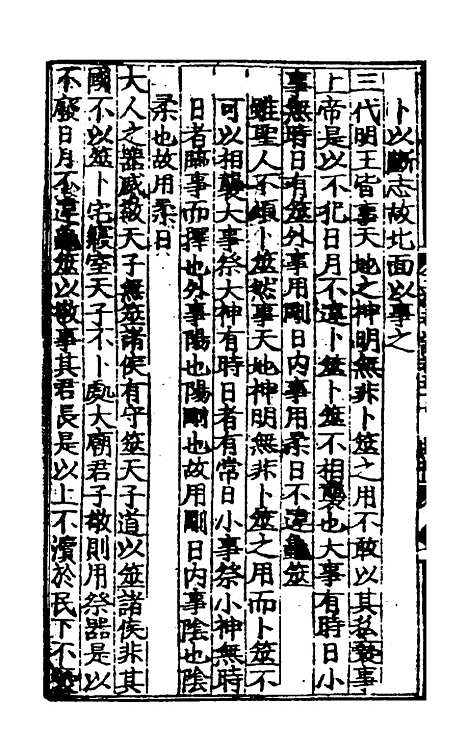 卜以斷志故北面以事之
三代明王皆事天地之神明無非卜筮之用不敢以其私䙝事
上帝是以不犯日月不違卜筮卜筮不相襲也大事有時日小
事無時日有筮外事用剛日內事用柔日不違龜筮
雖聖人不煩卜筮然事天地神明無非卜筮之用而卜筮不
可以相襲大事祭大神有時日者有常日小事祭小神無時
日者臨事而擇也外事陽也陽剛也故用剛日內事陰也陰
柔也故用柔日
大人之器威敬天子無筮諸侯有守筮天子道以筮諸侯非其
國不以筮卜宅寢室天子不卜處大廟君子敬則用祭器是以
不廢日月不違龜筮以敬事其君長是以上不瀆於民下不